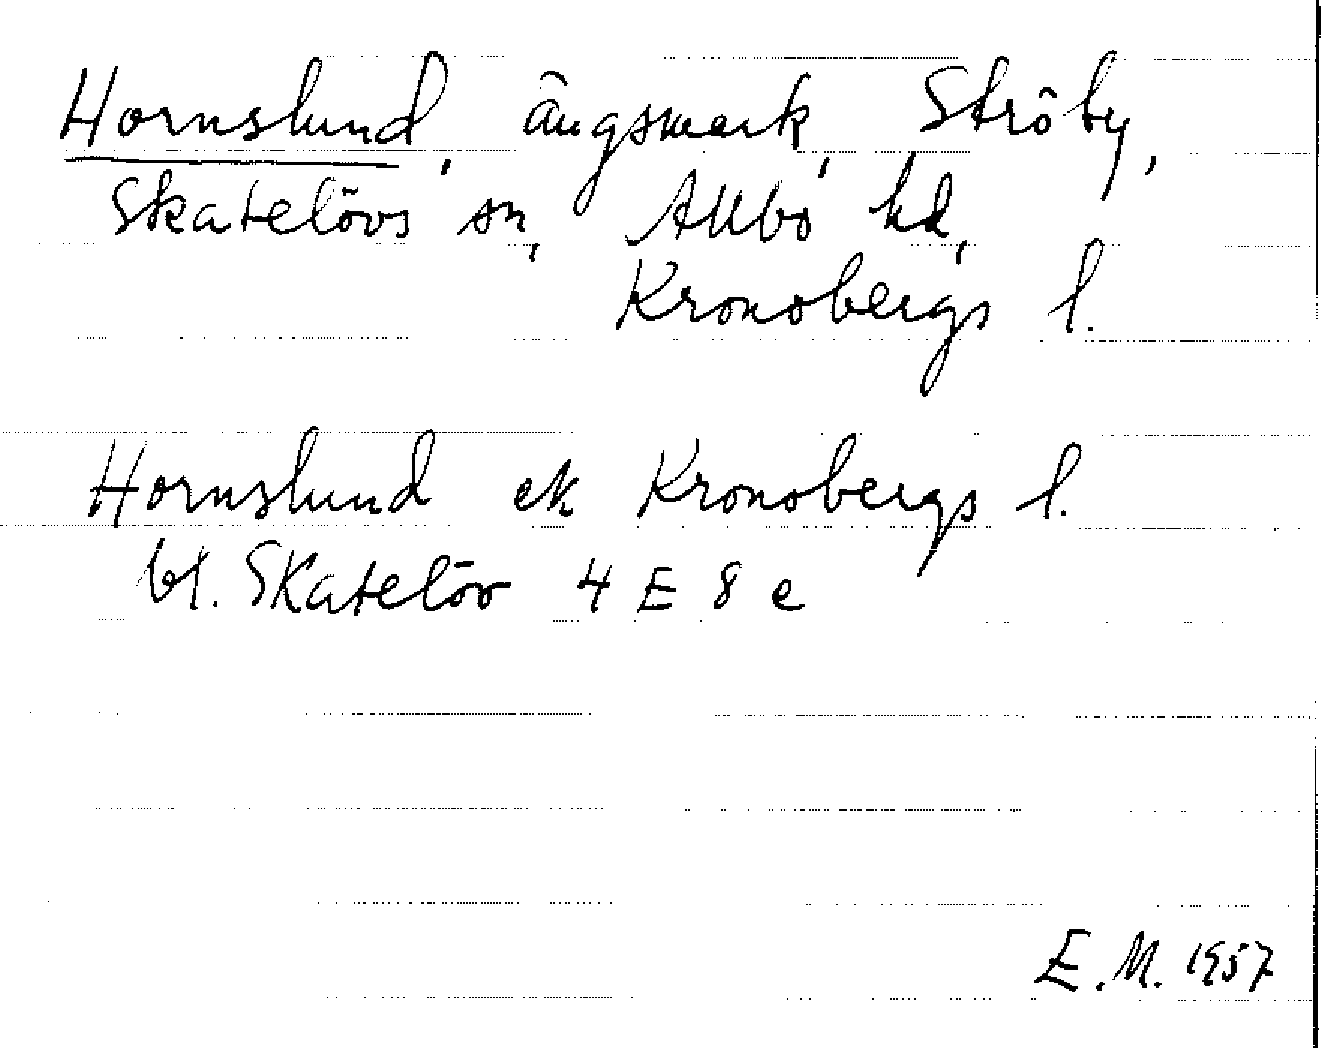 Hornslund, ängsmark, Ströby,
Skatelövs sn, Allbo hd,
Kronobergs l.
Hornslund ek Kronobergs l.
bl. Skatelöv 4 E 8 e
E.M. 1957